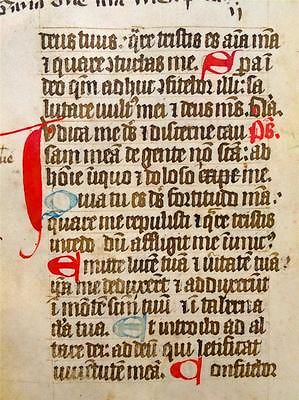 deus tuus: q̄re tristis es aīa mea
et quare ɔturbas me. Spa i
deo qm̄ adhuc ɔfitebor illi: sa
lutare vult⁹ mei et deus m̄s. Gl̄a
Judica me ds̄ et discerne cau Ps̄.
sam meā de gente nō sc̄ta: ab
hoīe iniquo et doloso eripe me.
Quia tu es ds̄ fortitudo mā:
quare me repulisti et q̄re tristis
incedo dū affligit me inimic⁹?
Emitte lucē tuā et v̓itatē tuā:
ip̄a me deduxerūt et adduxerūt
i mōtē sc̄m tuū et i tab̓na
cl̓a tua. Et introibo ad al
tare dei: ad deū qui letificat
iuuētutē meā. Confitebor